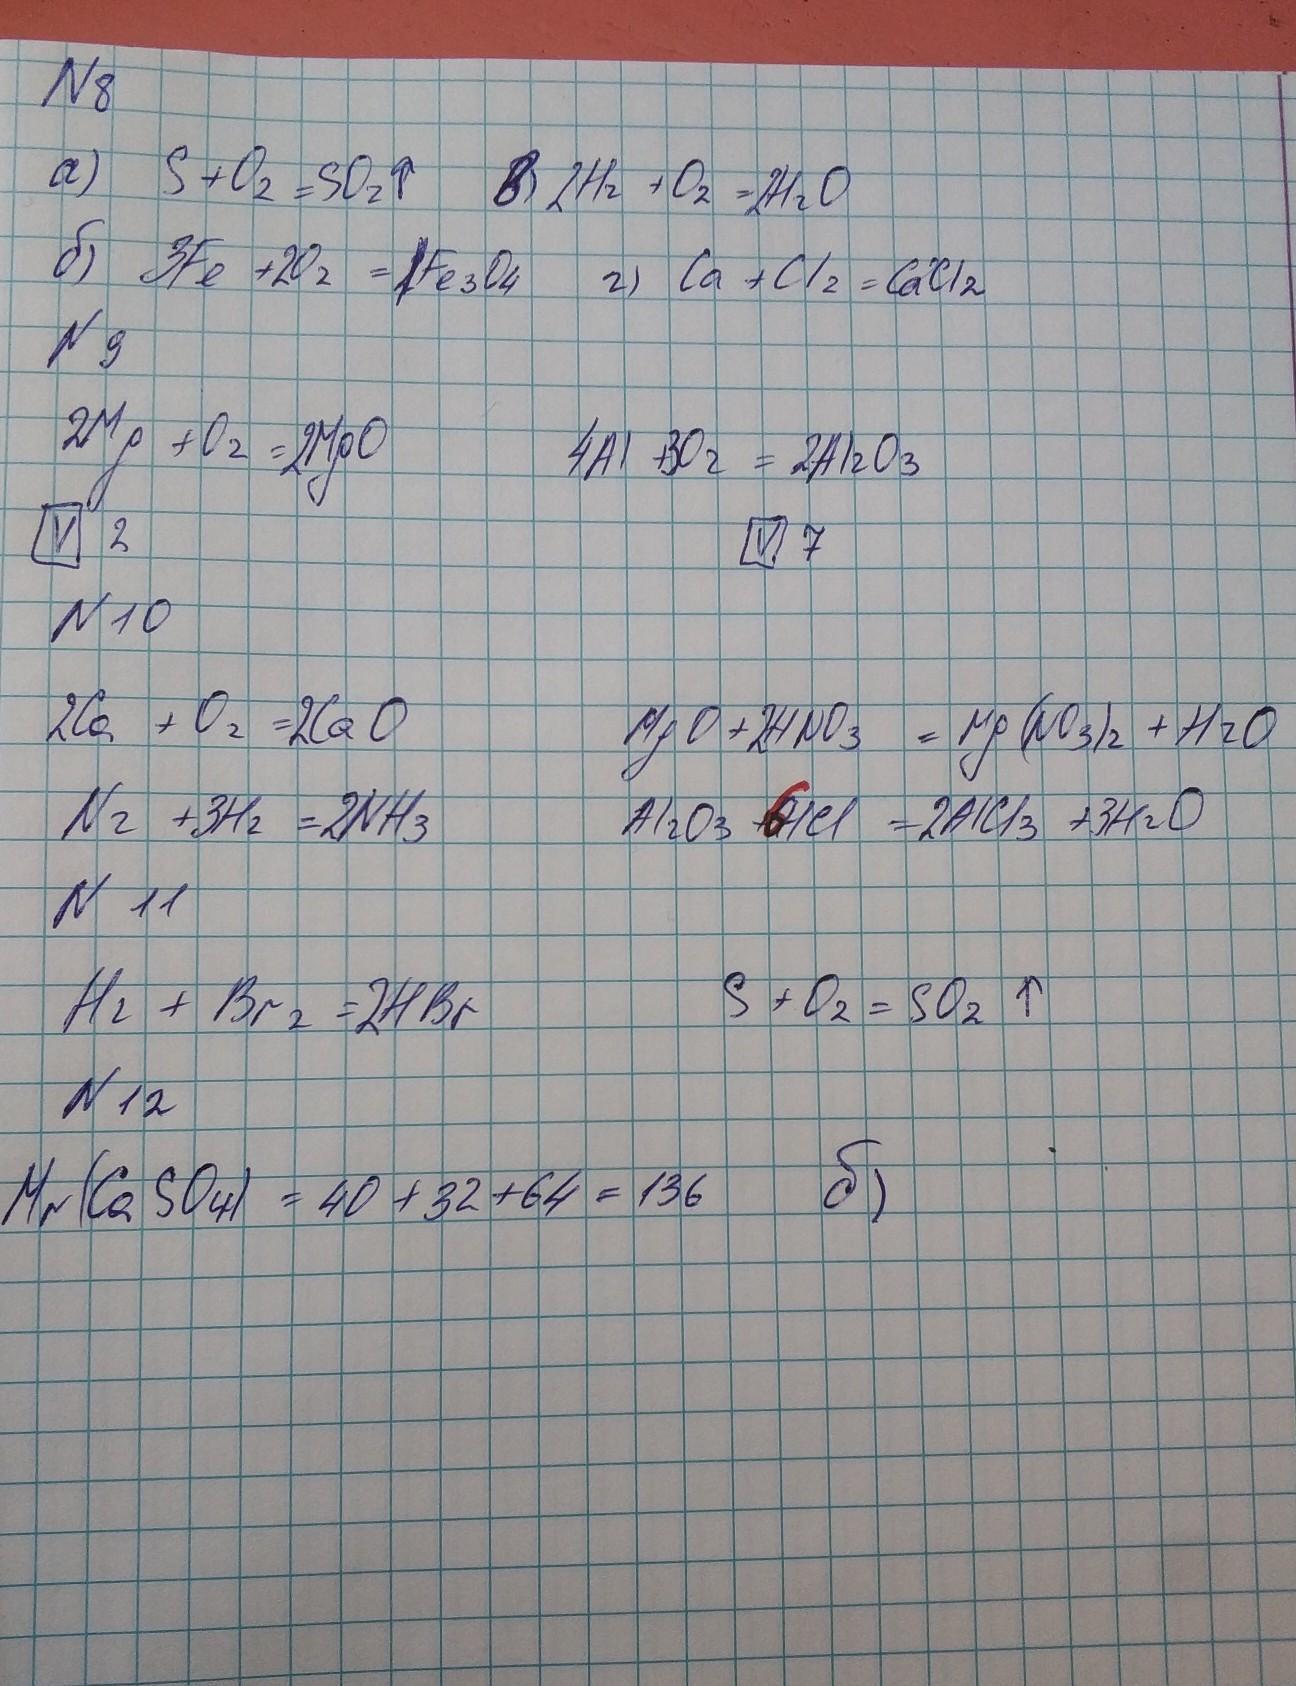 N8
а) S + O₂ = SO₂↑ в) 2H₂ + O₂ = 2H₂O
б) 3Fe + 2O₂ = 1Fe₃O₄ г) Ca + Cl₂ = CaCl₂
N 9
2Mg + O₂ = 2MgO 4Al + 3O₂ = 2Al₂O₃
V 2 V. 7
N 10
2Ca + O₂ = 2CaO MgO + 2HNO₃ = Mg(NO₃)₂ + H₂O
N₂ + 3H₂ = 2NH₃ Al₂O₃ + 6HCl = 2AlCl₃ + 3H₂O
N 11
H₂ + Br₂ = 2HBr S + O₂ = SO₂ ↑
N 12
Mr(CaSO₄) = 40 + 32 + 64 = 136 б)